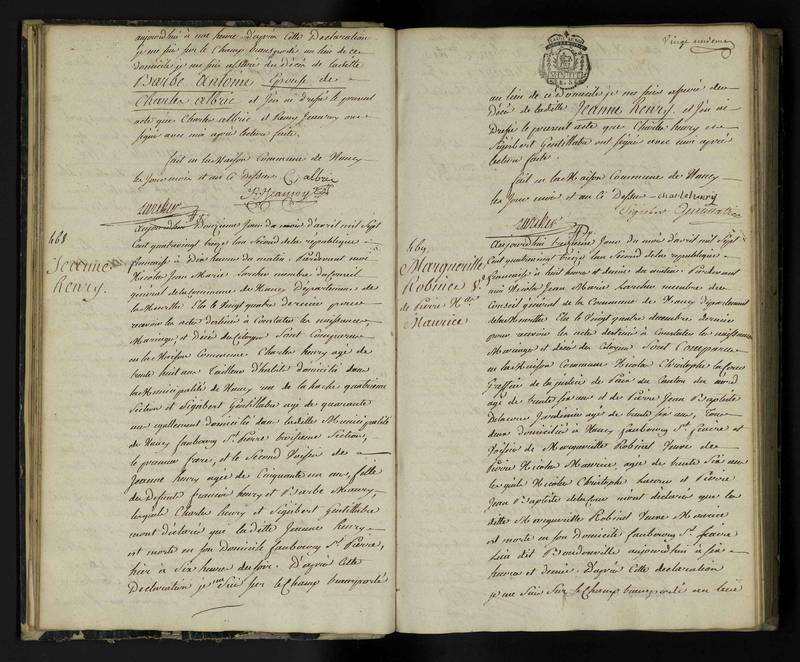 aujourd'hui à une heure. d'après cette Déclaration
je me suis sur le Champ transporté au lieu de ce
domicile je me suis assuré du Décès de ladite
Barbe Antoine Epouse de
Charles albric et j'en ai dressé le présent
acte que Charles albric et Remy Jeanroy ont
signé avec moi après lecture faite.
fait en la Maison Commune de Nancy
les Jour mois et an Ci Dessus C albric
R Jeanroy
Lorcher
468
Jeanne
henry.
Aujourdhui Douzieme Jour du mois d'avril mil Sept
Cent quatrevingt treize l'an Second de la république
française à Dix heures du matin. Pardevant moi
Nicolas Jean Marie Lorcher membre du Conseil
général de la Commune de Nancy Département de
la Meurthe Elu le Vingt quatre dernier pour
recevoir les acte destinés à Constater les naissances,
Mariage, et Décès des Citoyens Sont Comparus
en la Maison Commune Charles henry agé de
trente huit ans Tailleur d'habits domicilié dans
la Municipalité de Nancy rue de la hache quatrieme
Section et Sigisbert Gentillatre agé de quarante
ans egallement domicilié dans ladite Municipalité
de Nancy faubourg St. Pierre troisieme Section,
le premier frere, et le Second Voisin de
Jeanne henry agée de Cinquante un ans, fille
des Defunts francois henry et Barbe Maury,
lesquels Charles henry et Sigisbert Gentillatre
mont déclaré que ladite Jeanne henry
est morte en son domicile faubourg St. Pierre,
hier à Six heures du soir. D'après Cette
Déclaration je me Suis Sur le Champ transporté
Vingt unieme
au lieu de ce Domicile je me suis assuré du
Décès de ladite Jeanne henry. et j'en ai
Dressé le present acte que Charles henry et
Sigisbert Gentillatre ont signé avec moi après
lecture faite.
fait en la Maison Commune de Nancy
les Jour mois et an Ci Dessus charle henry
Sigisber Gentillatre
Lorcher
469
Marguerite
Robinet Ve.
de Pierre Nas.
Maurice
Aujourd'hui treizieme Jour du mois d'avril mil Sept
Cent quatrevingt treize l'an Second de la republique
française à huit heures et demie du matin. Pardevant
moi Nicolas Jean Marie Lorcher membre du
Conseil général de la Commune de Nancy Département
de la Meurthe Elu le Vingt quatre decembre dernier
pour recevoir les acte destinés à Constater les naissances
Mariage et décès des Citoyens Sont Comparus
en la Maison Commune Nicolas Christophe
Greffier de la justice de Paix du Canton du nord
agé de trente six ans et de Pierre Jean Baptiste
Delacour Jardinier agé de trente six ans, Tous
deux domiciliés à Nancy faubourg St. fiacre et
Voisins de Marguerite Robinet Veuve de
Pierre Nicolas Maurice, agée de trente Six ans
lesquels Nicolas Christophe et Pierre
Jean Baptiste delacour mont déclaré que la
dite Marguerite Robinet Veuve Maurice
est morte en son domicile faubourg St. fiacre
lieu dit Boudonville aujourdhui à six
heures et demie. D'après Cette déclaration
je me Suis Sur le Champ transporté au lieu